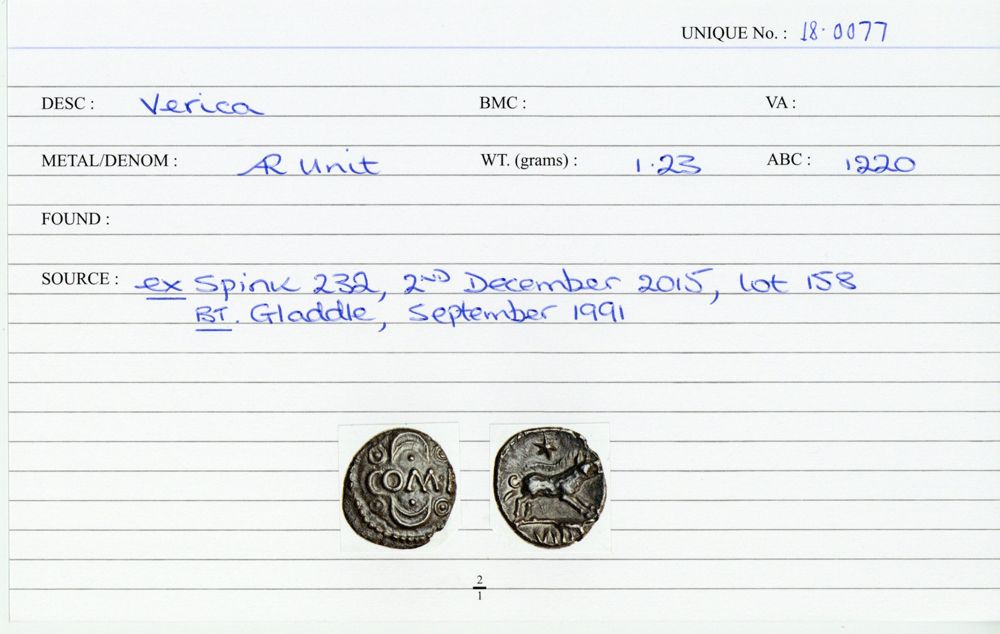 UNIQUE No. : 18·0077
DESC : Verica BMC : VA :
METAL/DENOM : AR Unit WT. (grams) : 1·23 ABC : 1220
FOUND :
SOURCE : ex Spink 232, 2ND December 2015, lot 158
BT. Gladdle, September 1991
COM·F
VI RI
2
1